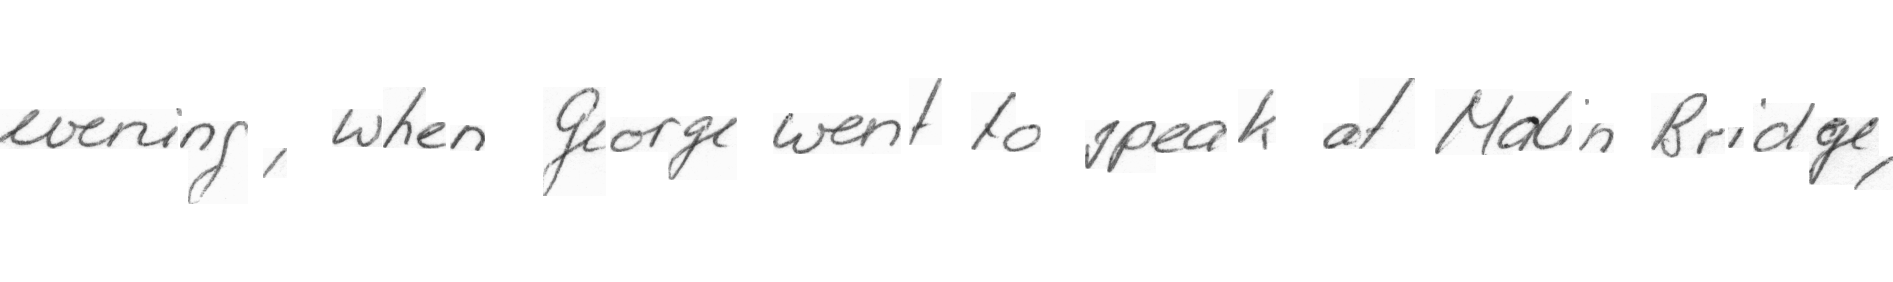 evening, when George went to speak at Malin Bridge,